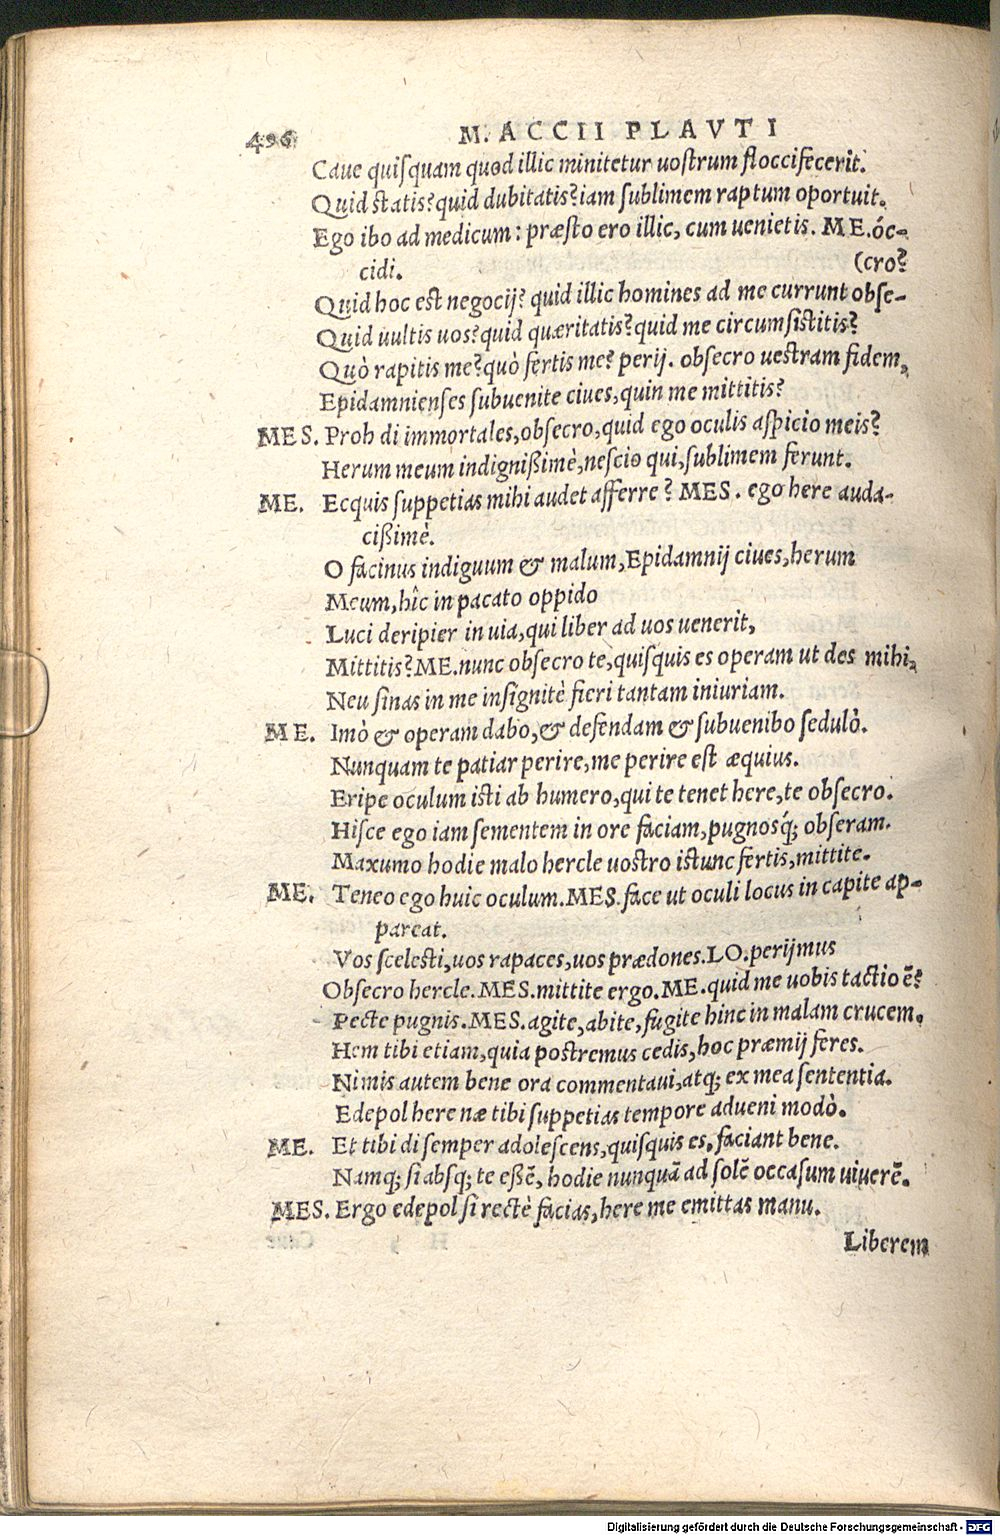 496 M. ACCII PLAVTI
Caue quiſquam quod illic minitetur uoſtrum floccifecerit.
Quid ſtatis? quid dubitatis? iam ſublimem raptum oportuit.
Ego ibo ad medicum: præſto ero illic, cum uenietis. ME. óc-
cidi. (cro?
Quid hoc eſt negocij? quid illic homines ad me currunt obſe-
Quid uultis uos? quid quæritatis? quid me circumſiſtitis?
Quò rapitis me? quò fertis me? perij. obſecro ueſtram fidem,
Epidamnienſes ſubuenite ciues, quin me mittitis?
MES. Proh di immortales, obſecro, quid ego oculis aſpicio meis?
Herum meum indignißimè, neſcio qui, ſublimem ferunt.
ME. Ecquis ſuppetias mihi audet afferre? MES. ego here auda-
cißimè.
O facinus indiguum & malum, Epidamnij ciues, herum
Meum, hîc in pacato oppido
Luci deripier in uia, qui liber ad uos uenerit,
Mittitis? ME. nunc obſecro te, quiſquis es operam ut des mihi,
Neu ſinas in me inſignitè fieri tantam iniuriam.
ME. Imò & operam dabo, & defendam & ſubuenibo ſedulò.
Nunquam te patiar perire, me perire eſt æquius.
Eripe oculum iſti ab humero, qui te tenet here, te obſecro.
Hiſce ego iam ſementem in ore faciam, pugnosq́; obſeram.
Maxumo hodie malo hercle uoſtro iſtunc fertis, mittite.
ME. Teneo ego huic oculum. MES. face ut oculi locus in capite ap-
pareat.
Vos ſceleſti, uos rapaces, uos prædones. LO. perijmus
Obſecro hercle. MES. mittite ergo. ME. quid me uobis tactio ẽ?
Pecte pugnis. MES. agite, abite, fugite hinc in malam crucem.
Hem tibi etiam, quia poſtremus cedis, hoc præmij feres.
Nimis autem bene ora commentaui, atq; ex mea ſententia.
Edepol here næ tibi ſuppetias tempore adueni modò.
ME. Et tibi di ſemper adoleſcens, quiſquis es, faciant bene.
Namq; ſi absq; te eßẽ, hodie nunquã ad ſolẽ occaſum uiuerẽ.
MES. Ergo edepol ſi rectè facias, here me emittas manu.
Liberem
Digitalisierung gefördert durch die Deutsche Forschungsgemeinschaft - DFG